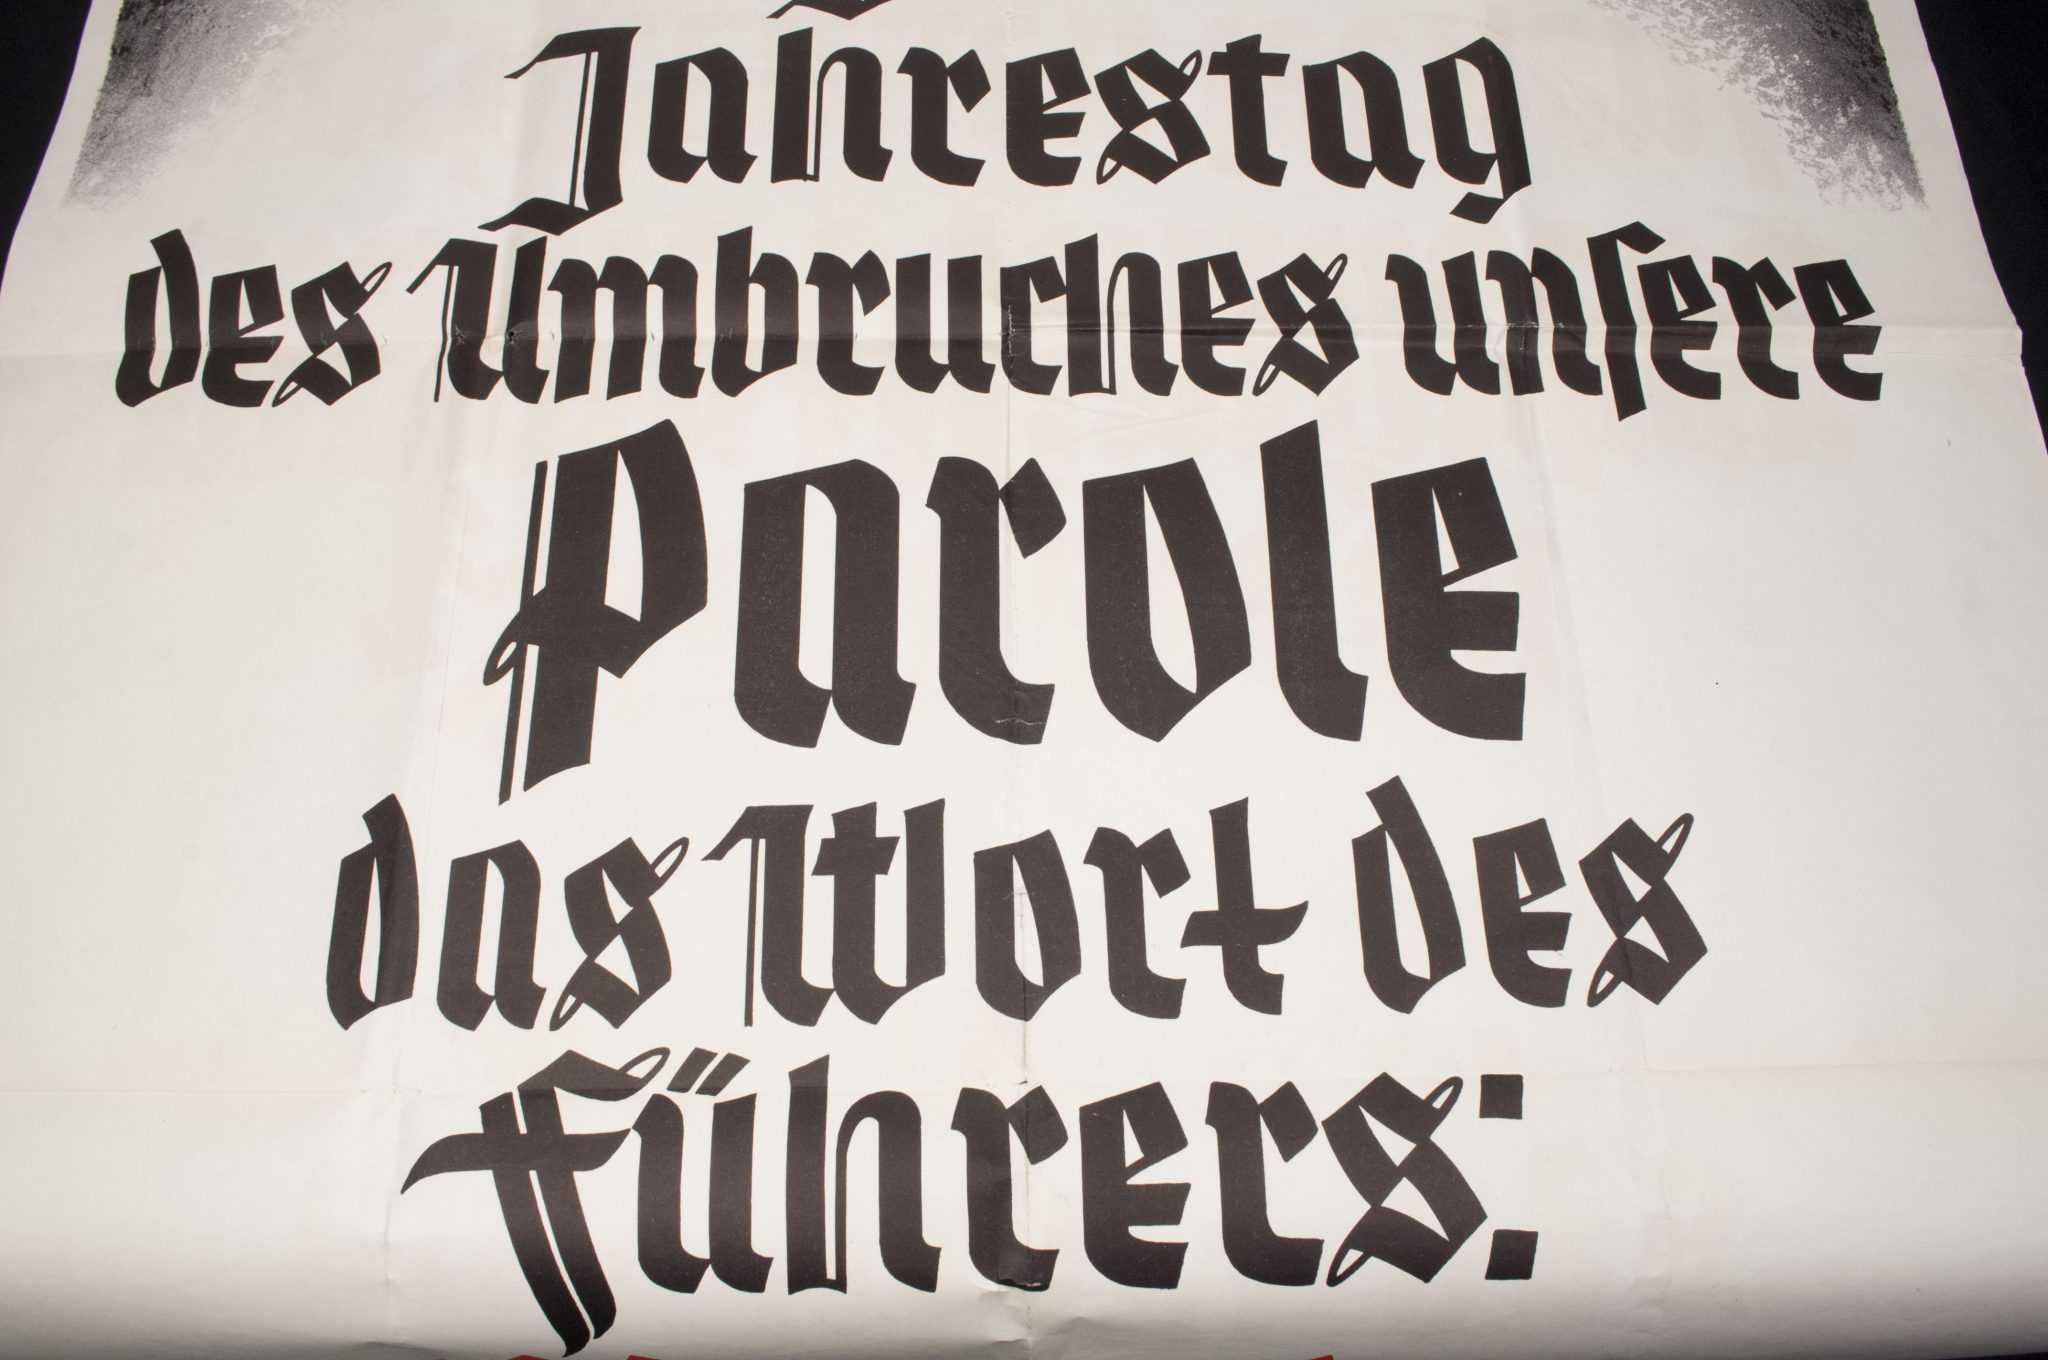 Jahrestag
des Umbruches unsere
Parole
das Wort des
Führers: